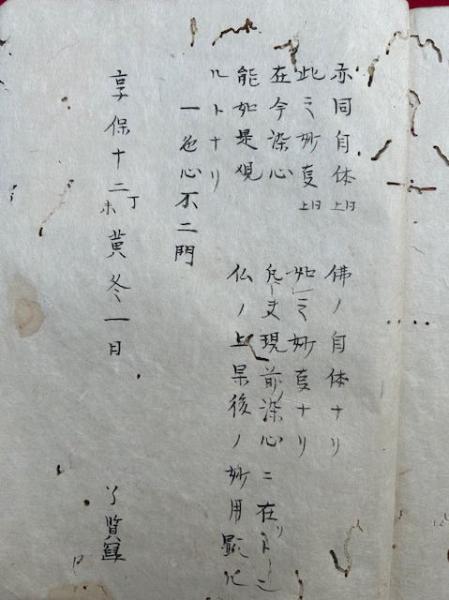 亦同自体上曰 佛ノ自体ナリ
此ニ妙 上曰 如ニ妙 ナリ
在今染心 現前ノ染心ニ在リ
能如是观 仏ノ上果後ノ妙用顕
ルトナリ
一色心不二門
享保十二丁未黄冬一日 了賢